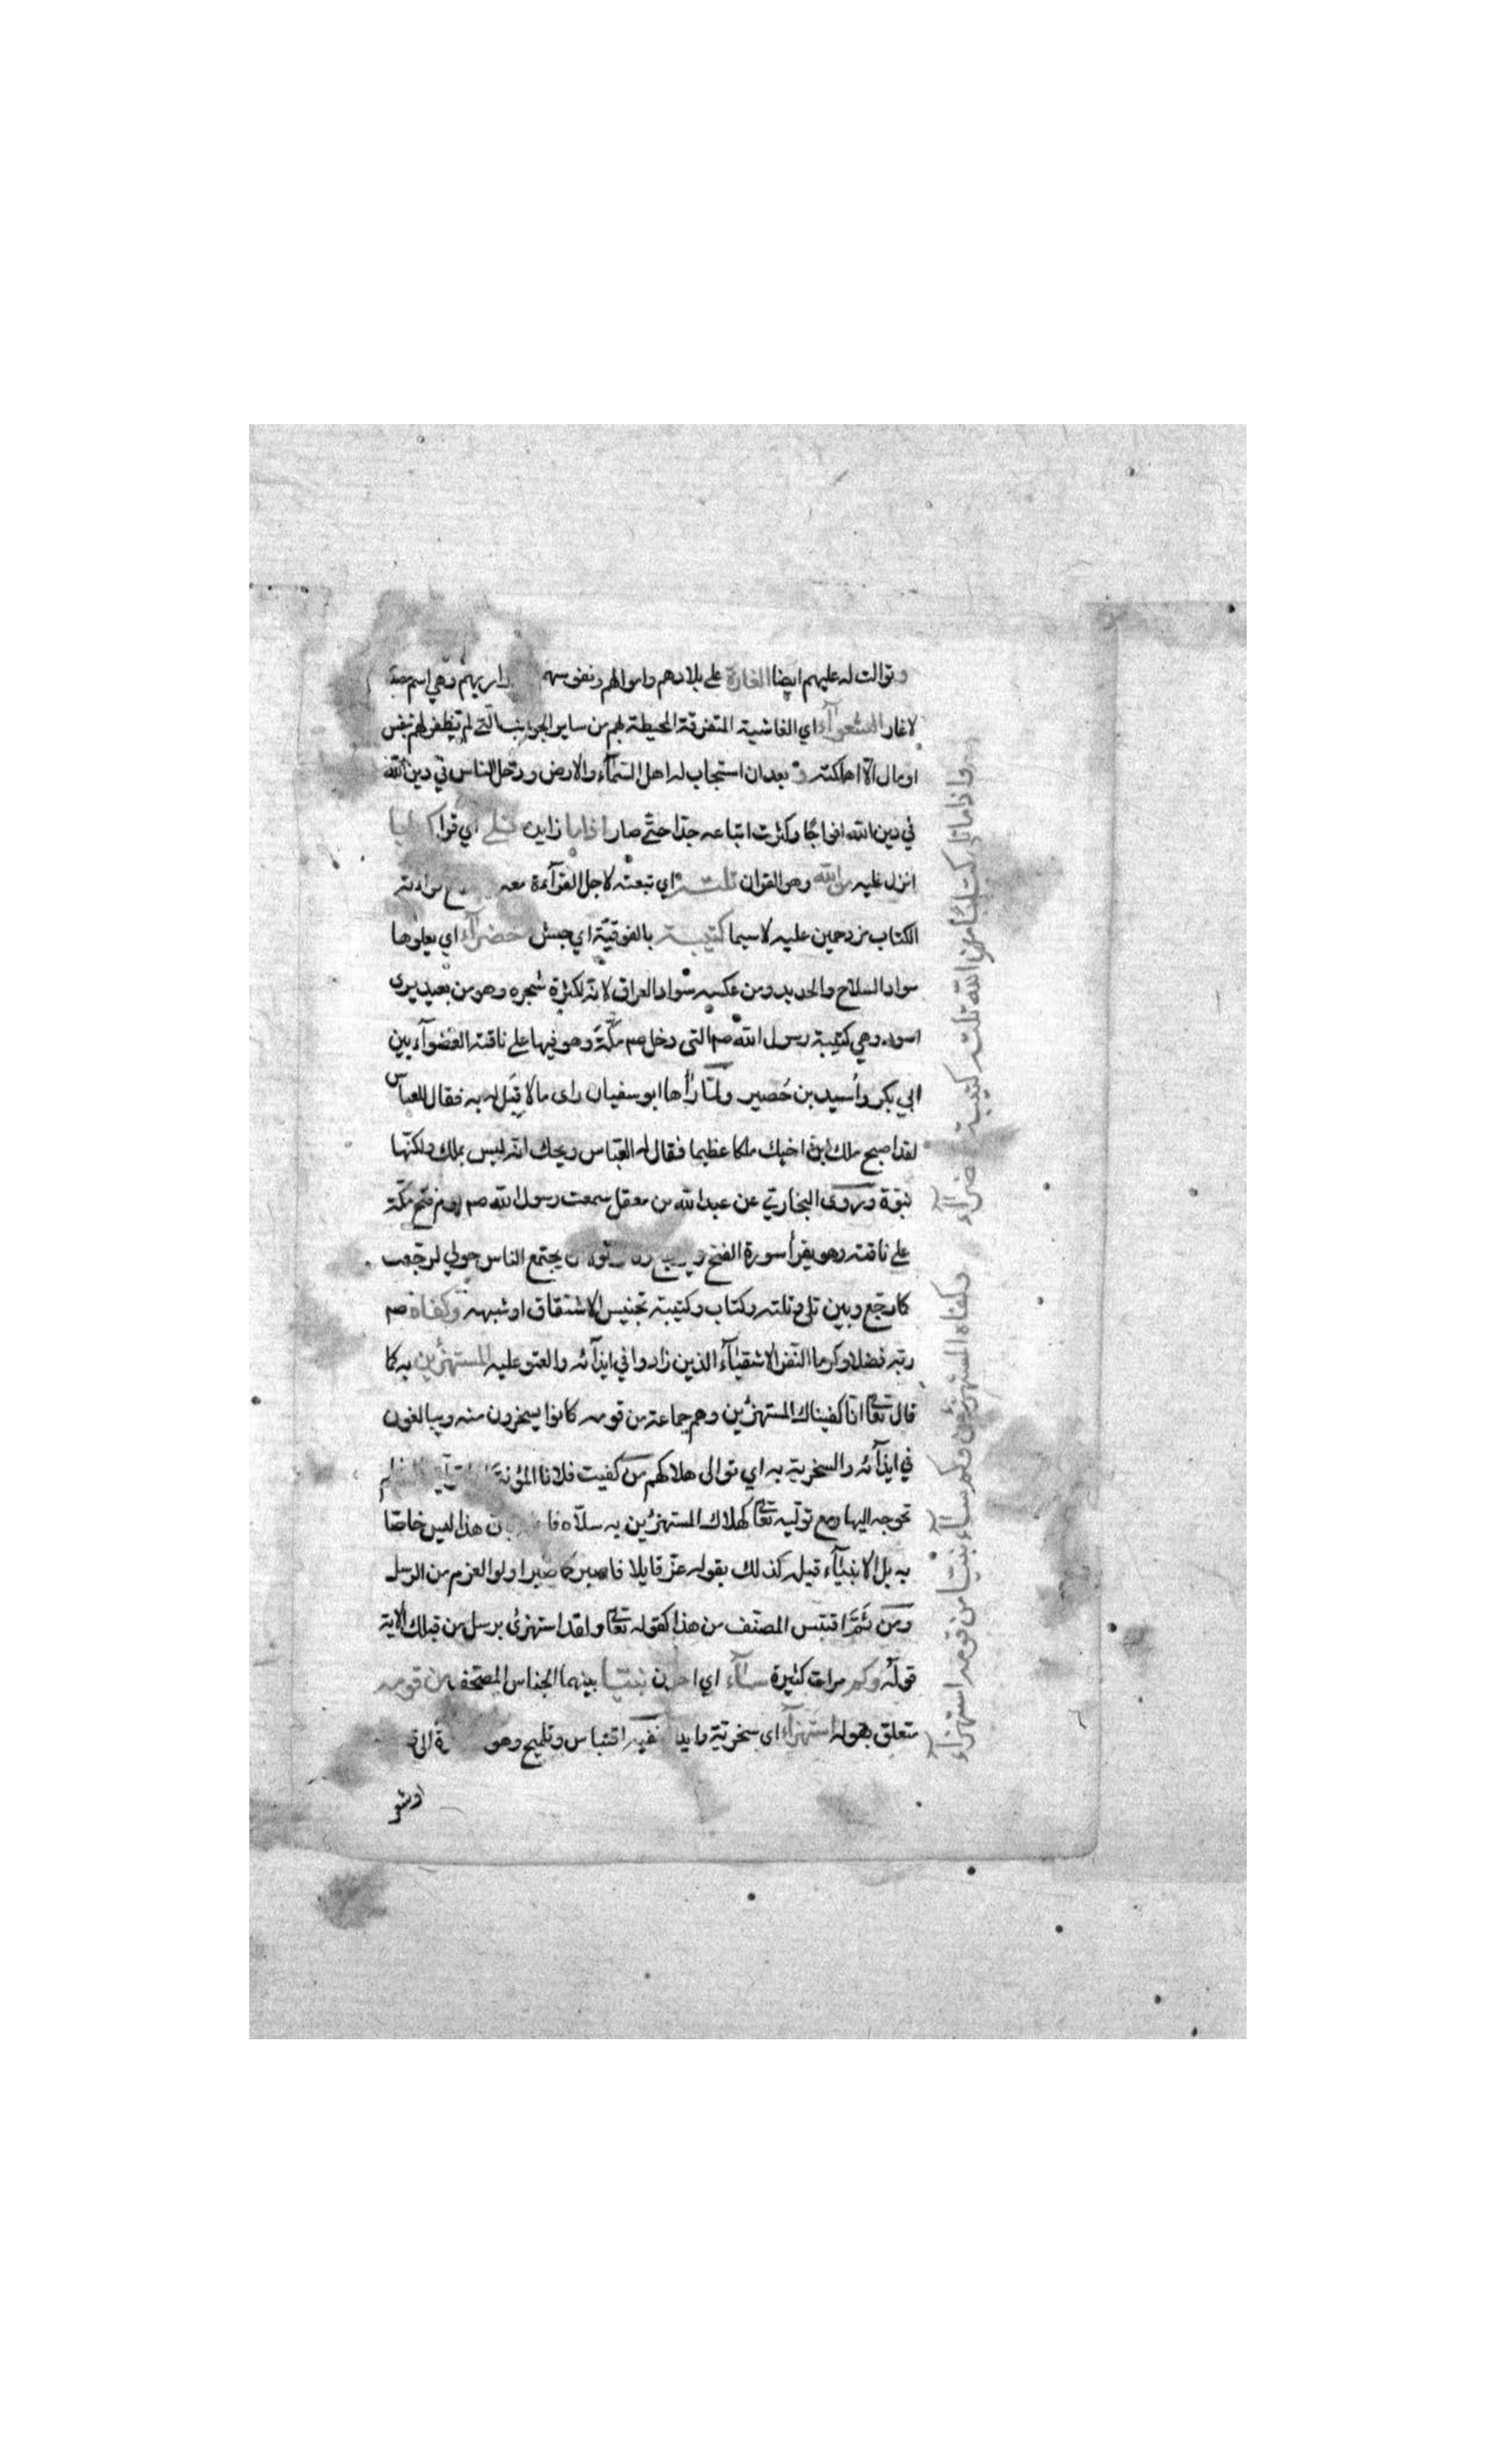 وتوالت له عليهم ايضا الغارة على بلادهم واموالهم ونفوسهم وهي اسم مصد
لاغار الشعوآء اي الغاشية المتفرقة المحيطة بهم من ساير الجوانب التي لم تظفر لهم بنفس
او مال الا اهلكته و بعد ان استجاب له اهل السمآء والارض ودخل الناس في دين الله
في دين الله افواجا وكثرت اتباعه جدا حتى صار اذا ما زايدة تلى اي قرا كتابا
انزل عليه من الله وهو القران تلته اي تبعته لاجل القرآءة معه
الكتاب مزدحمين عليه لا سيما كتيبة بالفوقية اي جيش خضرآء اي يعلوها
سواد السلاح والحديد ومن عكسه سواد العراق لانه لكثرة شجره وهو من بعيد يرى
اسود وهي كتيبة رسول الله صم التي دخل صم مكة وهو فيها على ناقته القضوآء بين
ابي بكر وأسيد بن حُضير ولما رأها ابو سفيان راى ما لا قِبَل له به فقال للعباس
لقد اصبح ملك ابن اخيك ملكا عظيما فقال له العباس ويحك انه ليس بملك ولكنها
نبوة وروى البخاري عن عبد الله من معقل سمعت رسول الله صم يوم فتح مكة
على ناقته وهو يقرأ سورة الفتح يجتمع الناس حولي لرجعت
كما رجع وبين تلى وتلته وكتاب وكتيبة تجنيس الاشتقاق او شبهه وكفاه صم
ربه فضلا وكرما النفر الاشقيآء الذين زادوا في ايذآئه والعتو عليه المستهزئين به كما
قال تعا انا كفيناك المستهزئين وهم جماعة من قومه كانوا يسخرون منه ويبالغون
في ايذآئه والسخرية به اي توالى هلاكهم من كفيت فلانا المؤنة
تحوجه اليها ومع توليه تعا لهلاك المستهزئين به سلاه بان هذا ليس خاصا
به بل الانبيآء قبله كذلك بقوله عز قايلا فاصبر كما صبر اولوا العزم من الرسل
ومن ثَمَّ اقتبس المصنف من هذا كقوله تعا ولقد استهزئ برسل من قبلك الاية
قوله وكم مرات كثيرة سآء اي احزن نبيا بينهما الجناس المصحف من قومه
متعلق بقوله استهزآء اى سخرية وايذا ففيه اقتباس وتلميح وهو
واذا ما تلى كتابا من الله تلته كتيبة خضرآء
وكفاه المستهزئين وكم سآء نبيا من قومه استهزآء